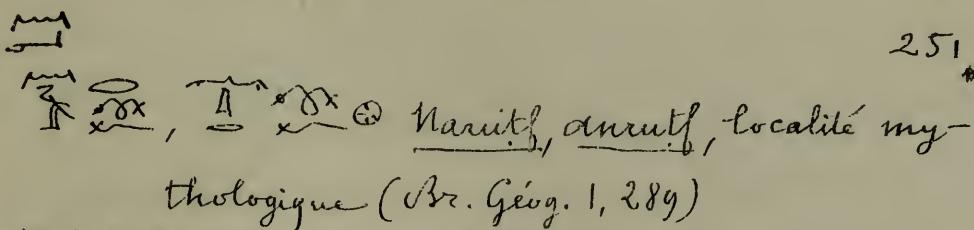 251
, Naruitf, anrutf, localité my-
thologique (Br. Géog. 1, 289)